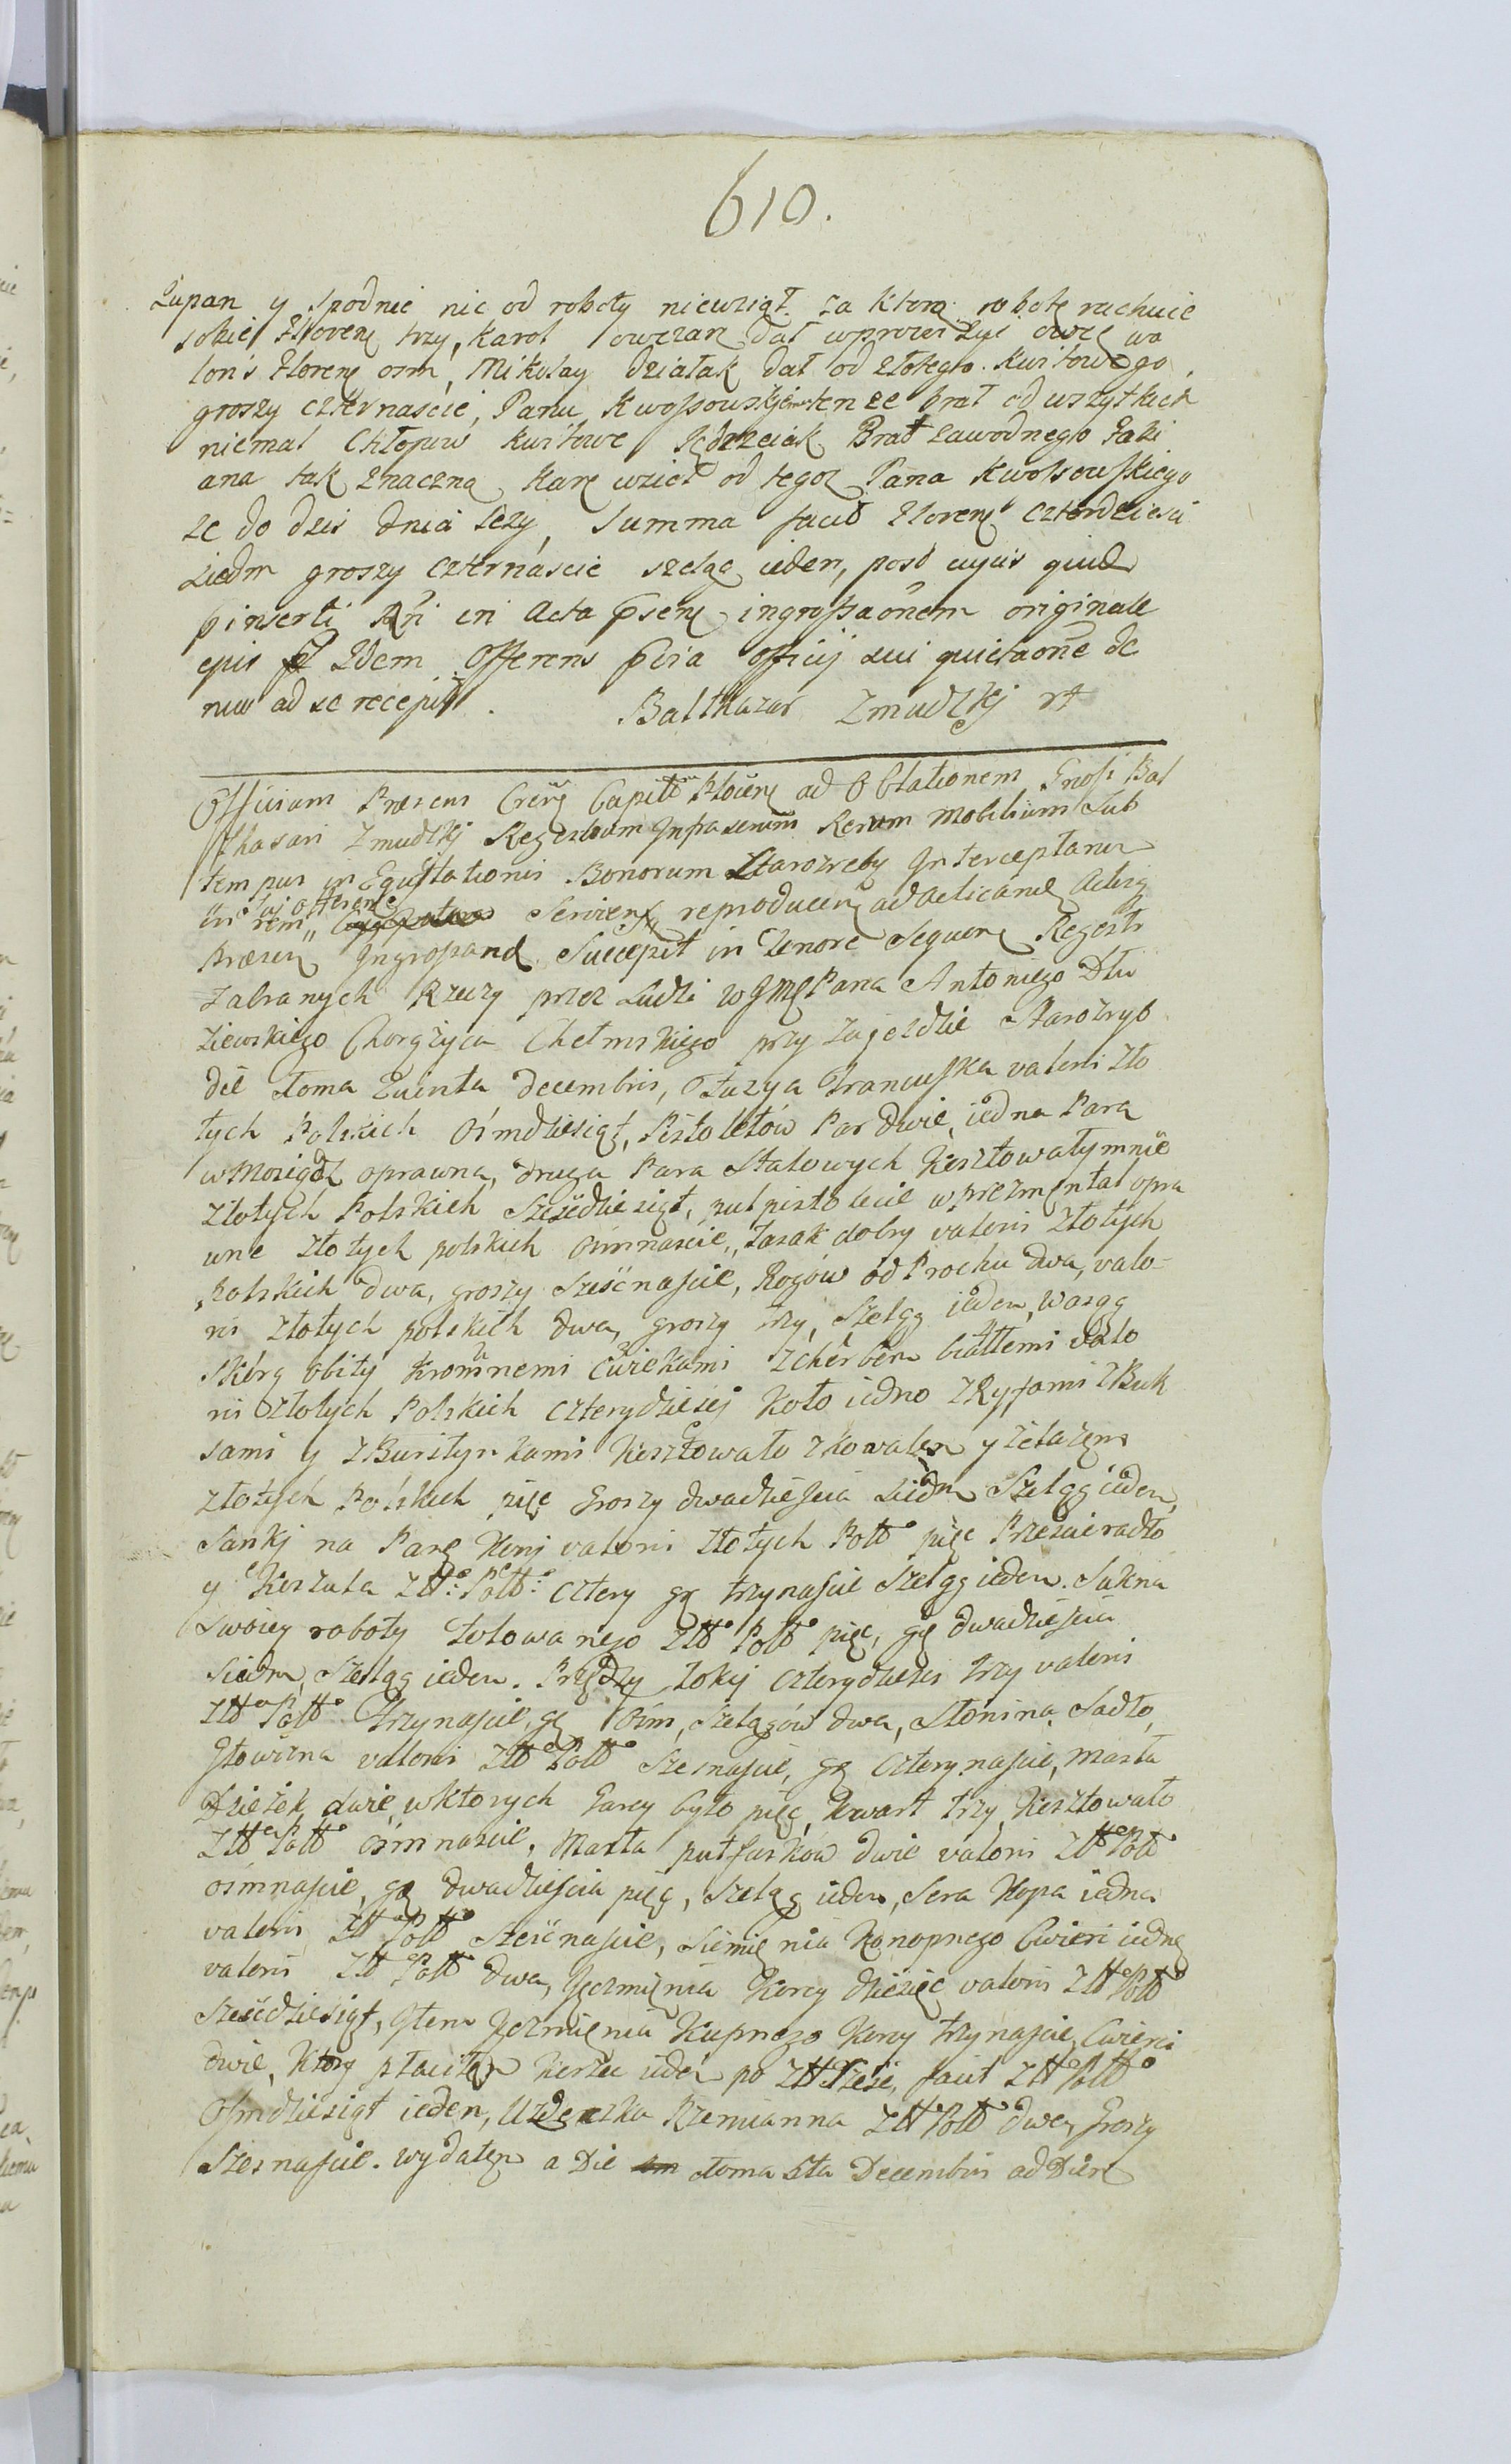 610.
Zupan y spodnie nic od roboty niewziął. za ktorą robotę rachuie
sobie Florenę trzy, Karol owczarz dał wprowizyi owcę va
loris Florenę osm, Mikołay działak dał od złotego. Kwitowego
groszy czternascie, Panu Kwossowskiemu tenze brał od wszytkich
niemal Chłopow kwitowe Jędrzeiak Brat zawodnego Fabi
ana tak znaczną karę wzieł od tegoz Pana Kwossowskiego
ze do dzis dnia lezy, Summa facit Florenę czterdziesci
siedm groszy czternascie szeląg ieden, post cujus quid
pinserti Rri in Acta psenę ingrossaonem originale
epis Idem Offerens pscia officij sui quietaone de
nuo ad se recepit. Balthazar Zmudzkj rt
Officium Præsens Crenę Capitle Plocenę ad Oblationem Gnosi Bal
thasari Zmudzkj Regestrum Infrascrium Rerum Mobilium Sub
tempus in Equitationis Bonorum Starozreby Interceptarum
in rem ej offerentę Servienę reproducenę ad acticandę Actisq
Præsenę Ingrossand. Suscepit in Tenore Sequenę Regestr
zabranych Rzeczy przez Ludzi WJMę Pana Antoniego Dłu
ziewskiego Chorążyca Chełmskiego przy zajezdzie Starozryb
die 4oma Quinta decembris, Fuzya Francuska valoris zło
tych Polskich Osmdziesiąt, Pistoletów Par dwie, iedna Para
w Mosiądz oprawna, druga Para Stalowych kosztowały mnie
złotych Polskich Sześcdziesiąt, puł pistolecie w prezmęntal opra
wne złotych polskich osmnascie, Tasak dobry valoris złotych
Polskich dwa, groszy Sześcnascie, Rogów od Prochu dwa, valo-
ris złotych polskich dwa, groszy trzy, Szeląg ieden, Wasąg
skórą obity kromnemi cwiekami z cherbem białłemi valo
ris złotych Polskich czterydziesci koło iedno z Ryfami z Buk
sami y z Bursztynkami kosztowało z kowalem y żelazem
złotych Polskich pięć Groszy dwadziescia siedm Szeląg ieden,
Sankj na Parę Konj valoris złotych Poll pięc Przescieradło
y Koszula Złł: Poll: cztery gę trzynascie Szeląg ieden. Sukna
swoiey roboty folowanego Złł Poll pięc, gę dwadziescia
siedm, Szeląg ieden. Przędzy łokcj czterydziesci trzy valoris
Złł Poll Trzynascie, gę Osm, Szelągów dwa, Słonina, Sadło,
Głowizna valoris Złł Poll Szesnascie, gę czterynascie, Masła
Dzieżek dwie w ktorych Garcy było pięc, kwart trzy kosztowało
Złł Poll osmnascie. Masła puł faskow dwie valoris Złł Poll
osmnascie, gę dwadziescia pięc, Szeląg ieden, Sera Kopa iedna
valoris Złł Poll Sześcnascie, Siemięnia Konopnego Cwierci iedne
valoris Złł Poll dwa, Jęczmięnia Korcy dziesięc valoris Złł Poll
Sześcdziesiąt, Item Jęczmięnia Kupnego Korcy trzynascie, Cwierci
dwie, Ktorą płaciłem korzec ieden po Złł Sześc, facit Złł Poll
Osmdziesiąt ieden, Uzdeczka Rzemianna Złł Poll dwa, Groszy
Szesnascie. wydałem a Die 4oma 5ta Decembris ad Diem